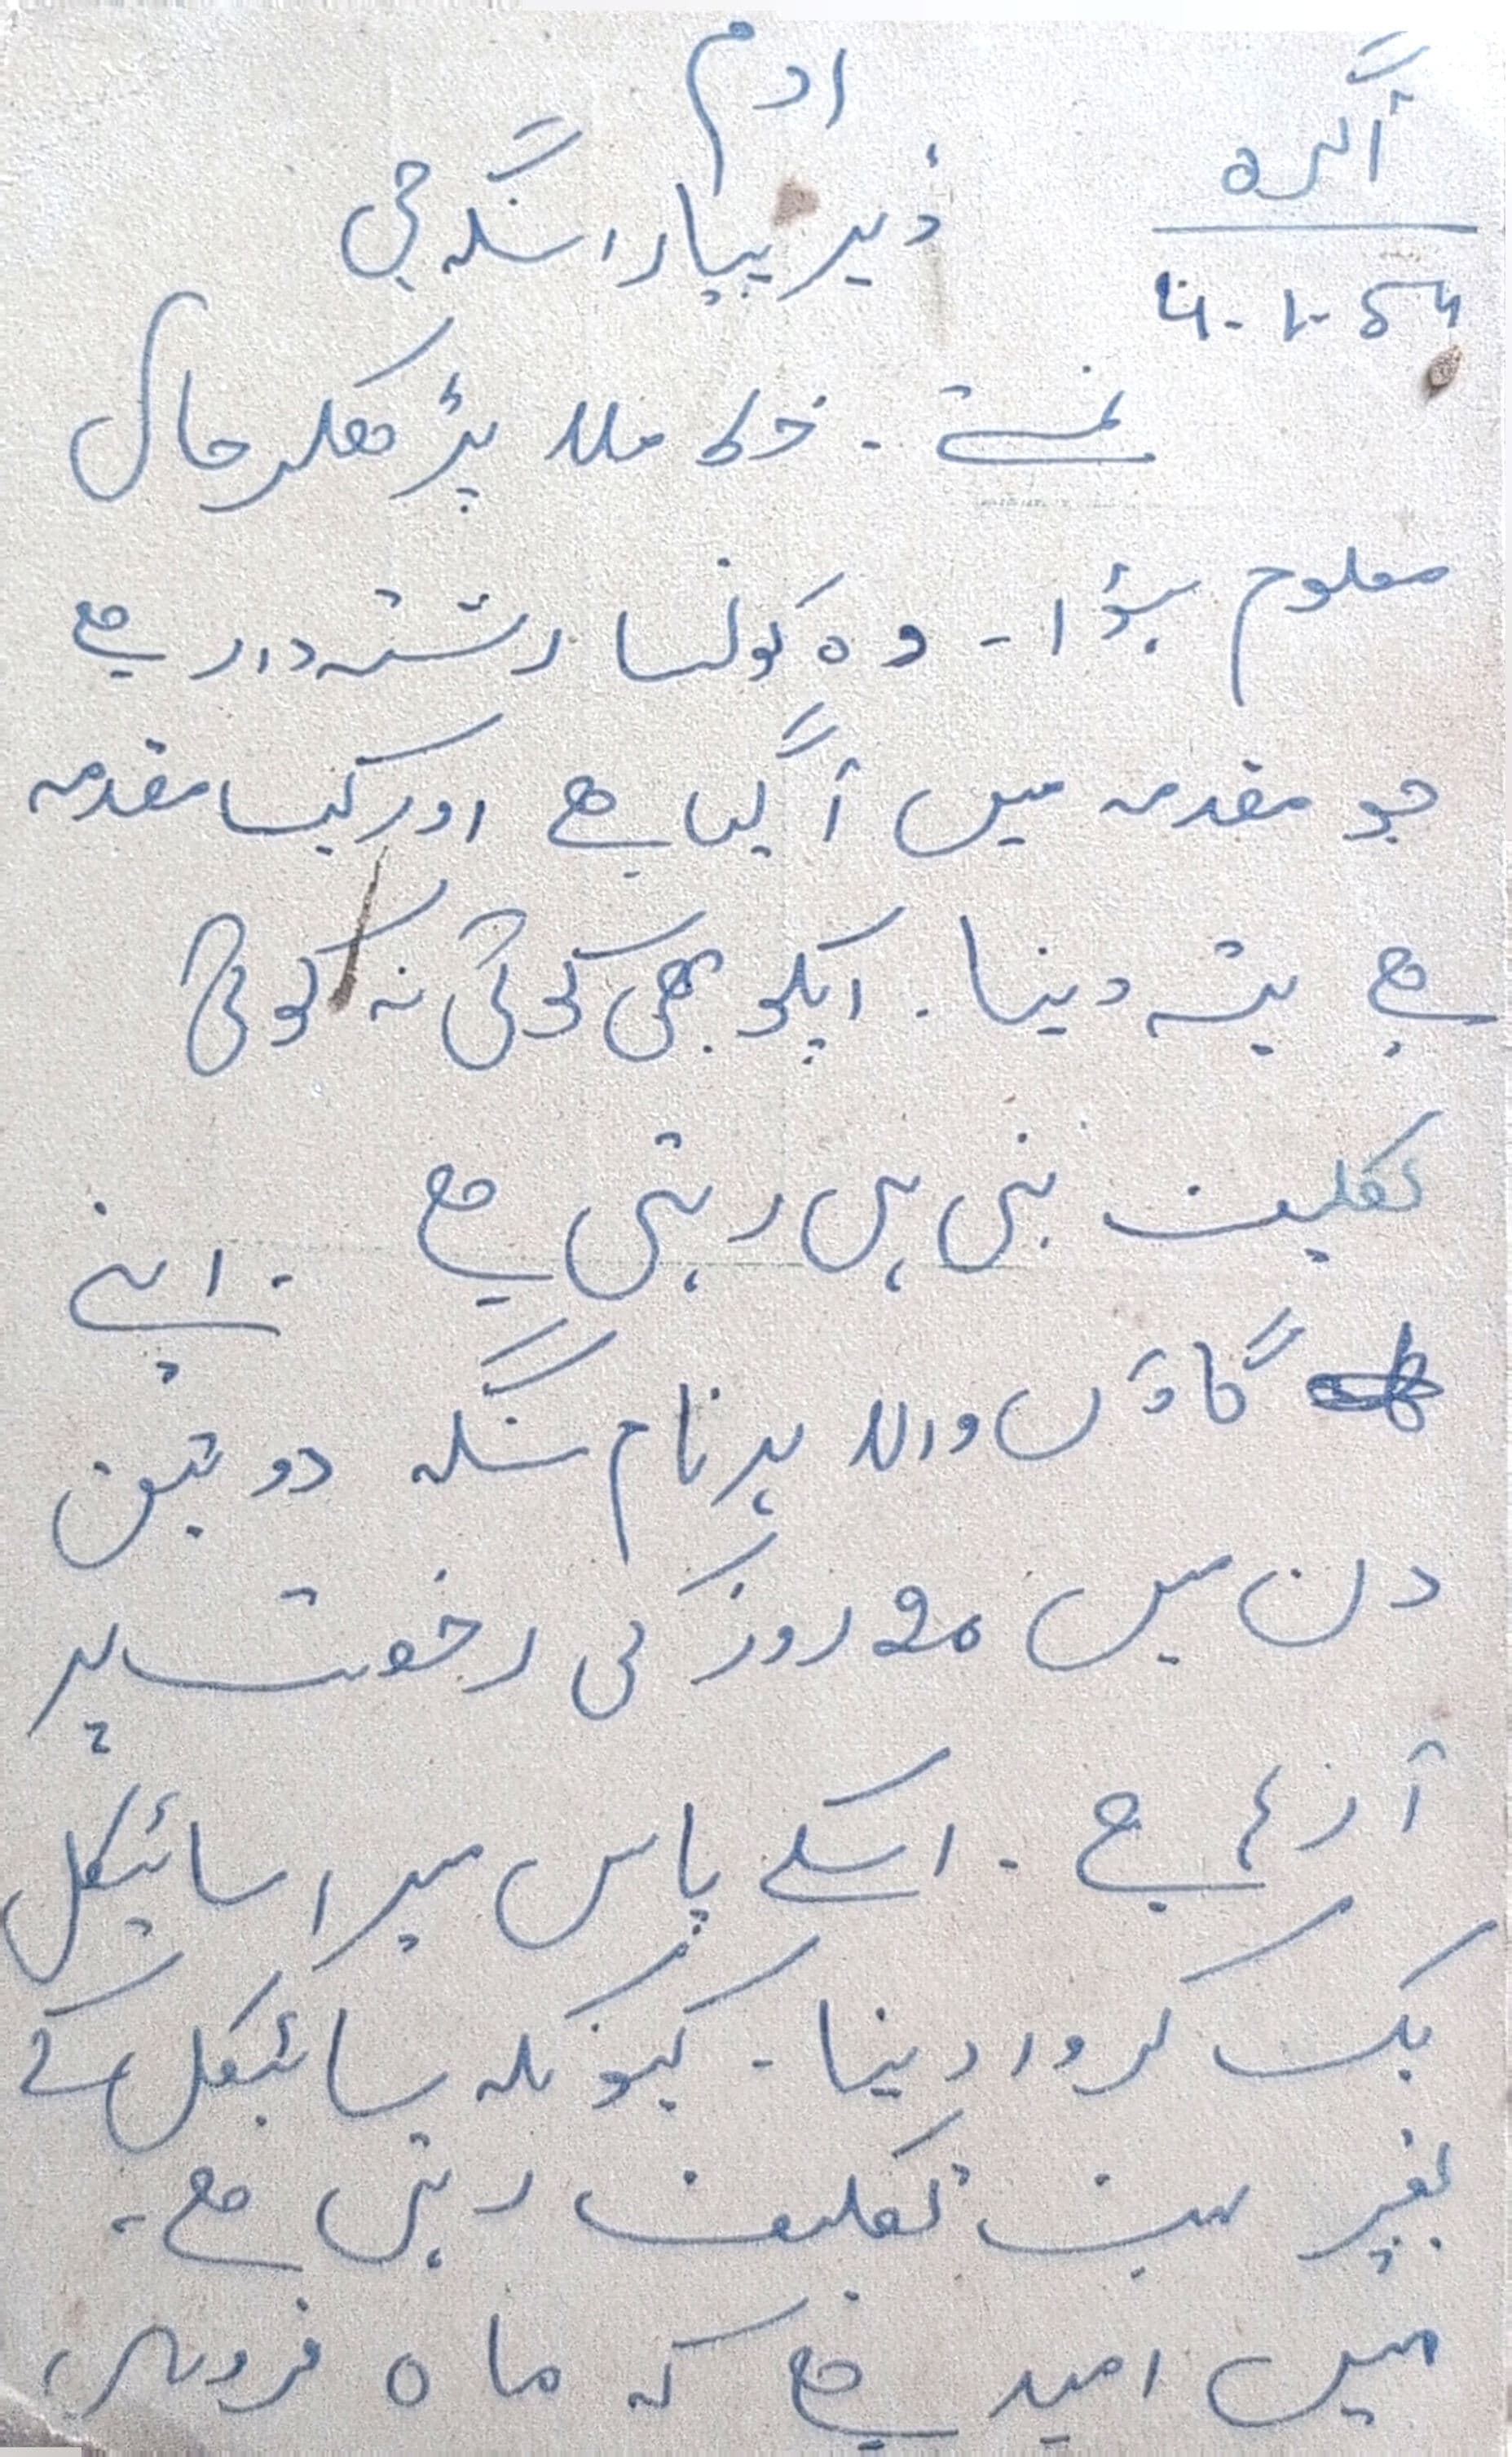 اوم
آگرہ
ڈیر پیارا سنگھ جی
نمستے ۔ خط ملا پڑھکر حال
معلوم ہؤا ۔ وہ کونسا رشتہ دار ہے
جو مقدمہ میں آ گیا ہے اور کیسا مقدمہ
ہے پتہ دینا ۔ آپکو بھی کوئی نہ کوئی
تکلیف بنی ہی رہتی ہے ۔ اپنے
گاؤں والا ہرنام سنگھ دو تین
دن میں 20 روز کی رخصت پر
آ رہا ہے ۔ اسکے پاس میرا سائیکل
بک کروا دینا ۔ کیونکہ سائیکل کے
بغیر بہت تکلیف رہتی ہے ۔
میں امید ہے کہ ماہ فروری